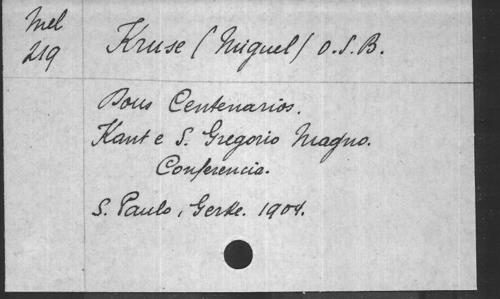 Mel
219
Kruse (Miguel) O.S.B.
Dous Centenarios.
Kant e S. Gregorio Magno.
Conferencia.
S. Paulo, Gerke. 1904.